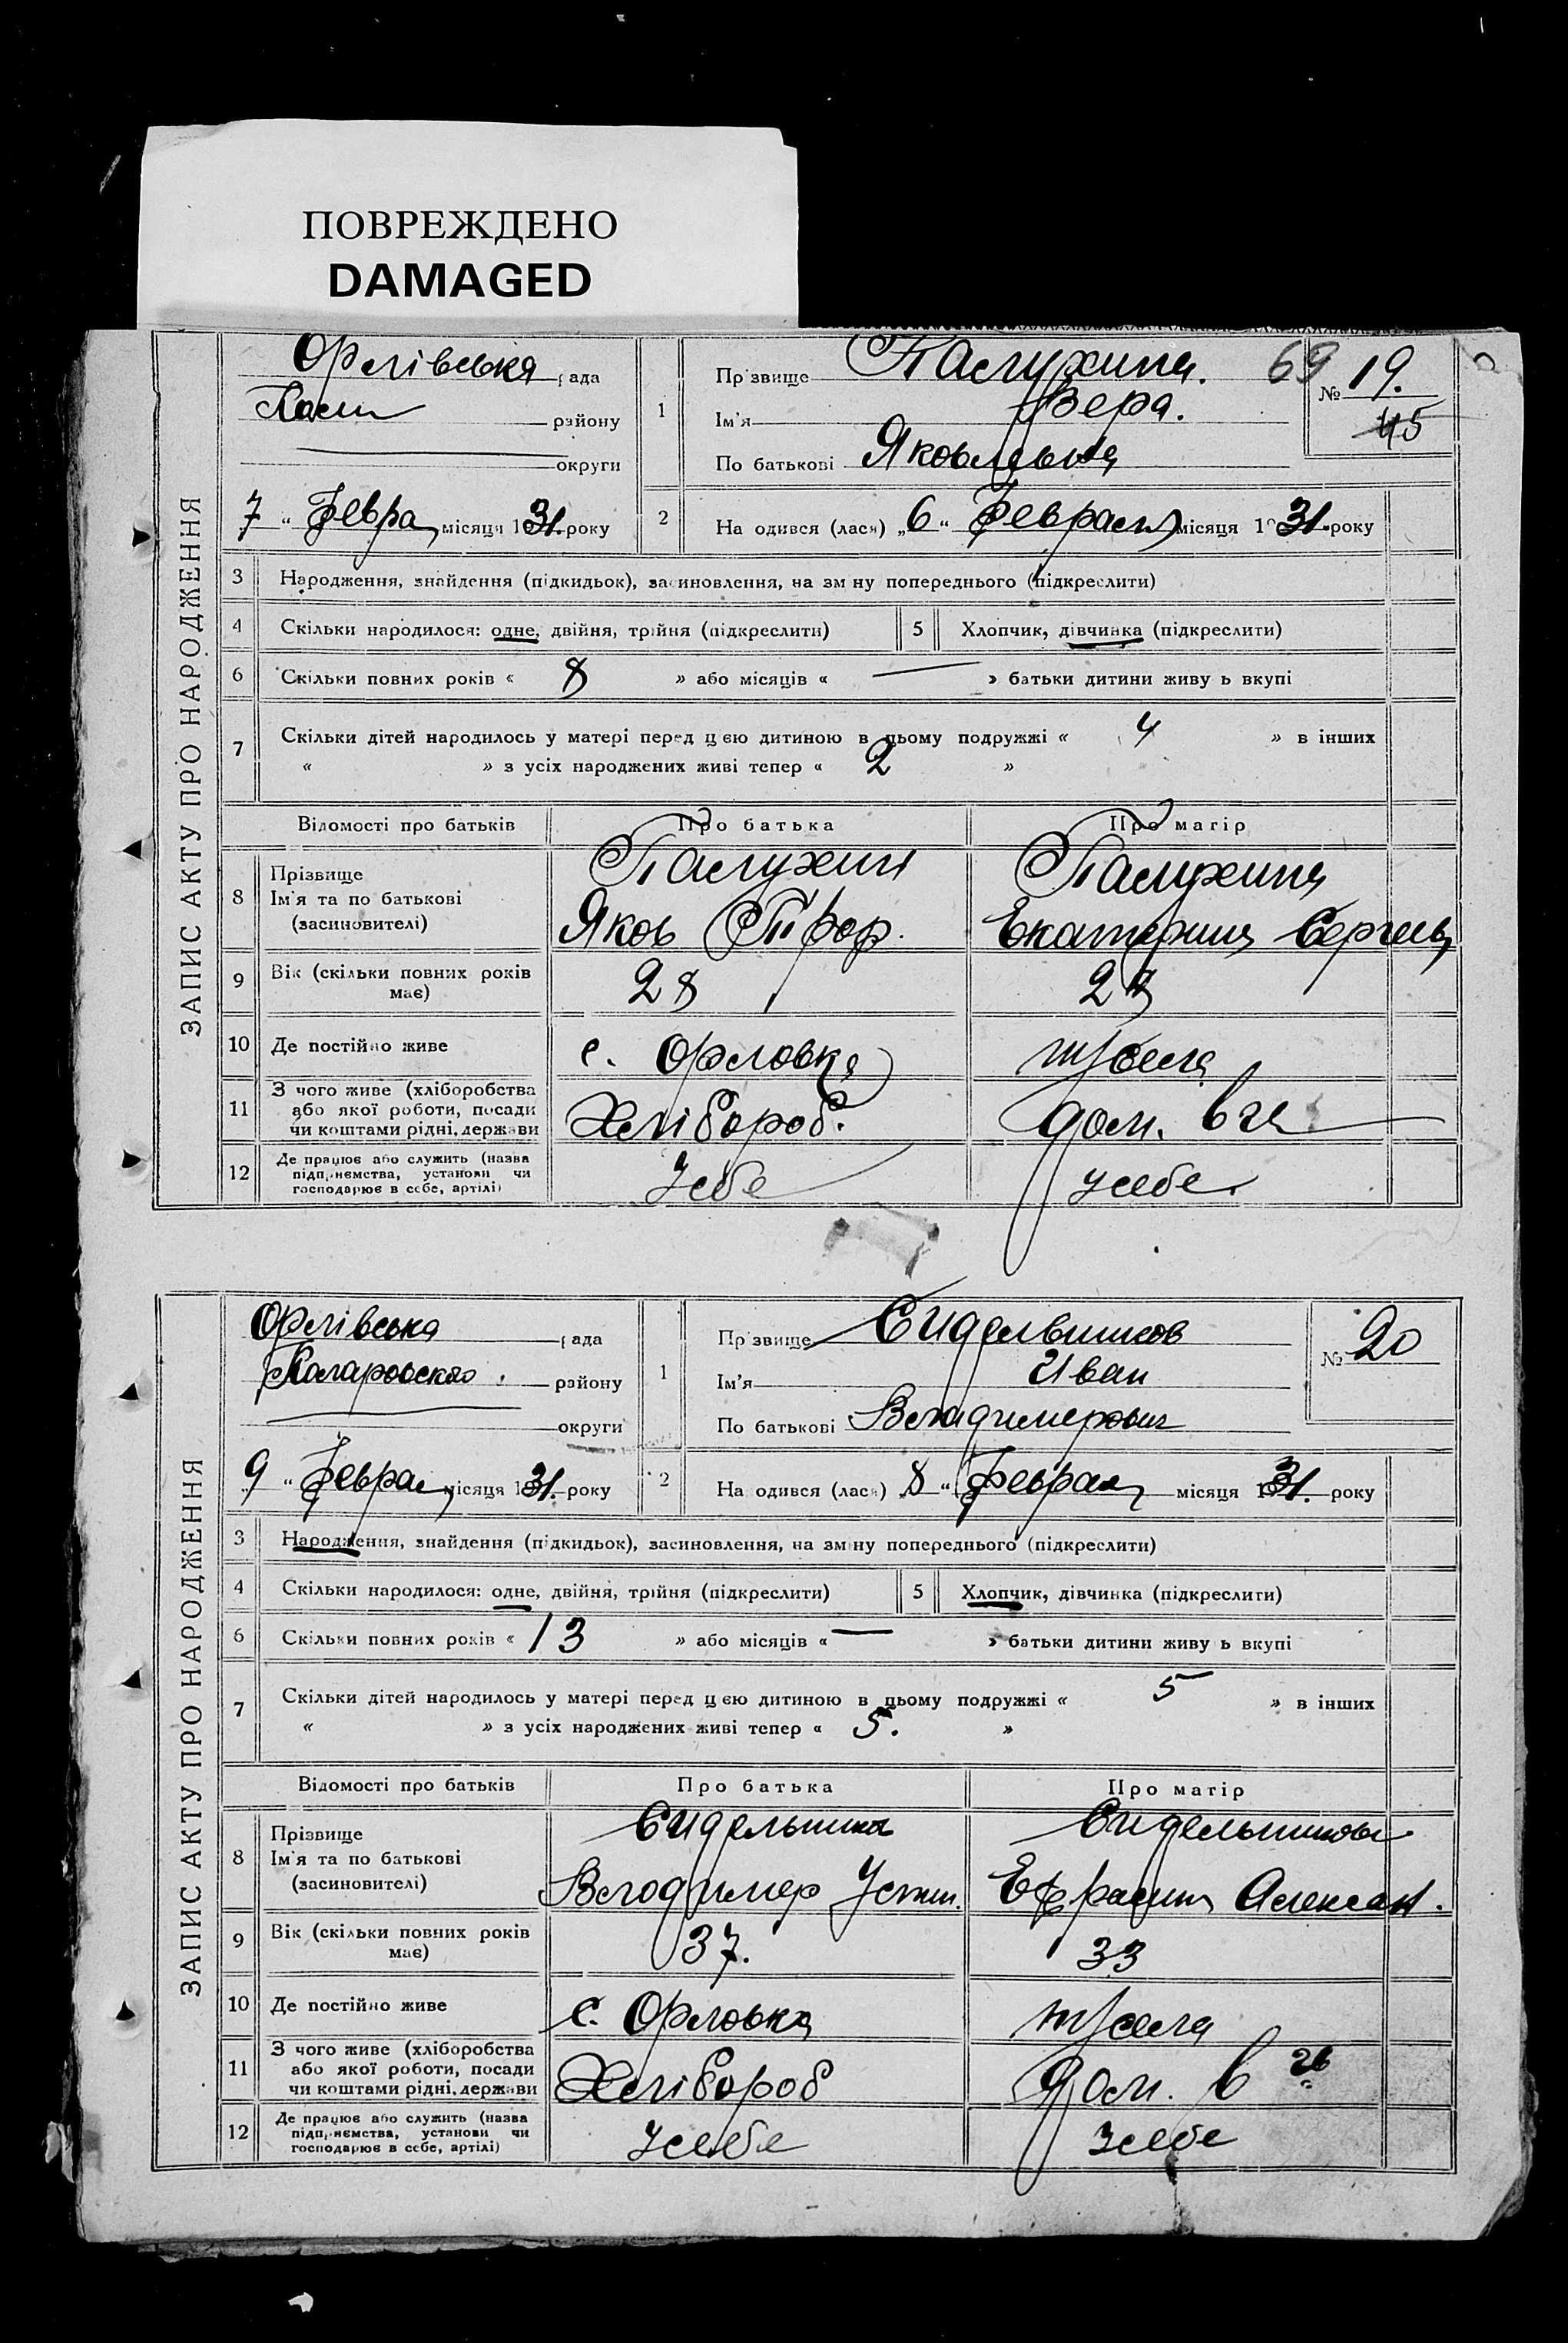 ПОВРЕЖДЕНО
DAMAGED
ЗАПИС АКТУ ПРО НАРОДЖЕННЯ
Орлівська рада
району
округи
7 " Февра місяця 1931 року
1
Прізвище Палухина.
Ім'я Вера.
По батькові Яковлевна
69
№ 19.
45
2 На одився (лася) „6" Февраля місяця 1931. року
3 Народження, знайдення (підкидьок), засиновлення, на зміну попереднього (підкреслити)
4 Скільки народилося: одне, двійня, трійня (підкреслити) 5 Хлопчик, дівчинка (підкреслити)
6 Скільки повних років « 8 » або місяців « — » батьки дитини живуть вкупі
7 Скільки дітей народилось у матері перед цією дитиною в цьому подружжі « 4 » в інших
« » з усіх народжених живі тепер « 2 »
Відомості про батьків Про батька Про матір
8 Прізвище
Ім'я та по батькові
(засиновителі)
Палухин
Яков
Палухина
Екатерина Сергеев
9 Вік (скільки повних років
має)
28 27
10 Де постійно живе с. Орловка
11 З чого живе (хліборобства
або якої роботи, посади
чи коштами рідні, держави
Хлібороб. дом.
12 Де працює або служить (назва
підприємства, установи чи
господарює в себе, артілі)
Усебе усебе.
ЗАПИС АКТУ ПРО НАРОДЖЕННЯ
Орлівська рада
району
округи
9 " Феврал місяця 1931. року
1
Прізвище Сидельников
Ім'я Иван
По батькові Володимерович
№ 20
2 На одився (лася) „8" Феврал місяця 1931. року
3 Народження, знайдення (підкидьок), засиновлення, на зміну попереднього (підкреслити)
4 Скільки народилося: одне, двійня, трійня (підкреслити) 5 Хлопчик, дівчинка (підкреслити)
6 Скільки повних років « 13 » або місяців « — » батьки дитини живуть вкупі
7 Скільки дітей народилось у матері перед цією дитиною в цьому подружжі « 5 » в інших
« » з усіх народжених живі тепер « 5. »
Відомості про батьків Про батька Про матір
8 Прізвище
Ім'я та по батькові
(засиновителі)
Володимер Устин.
Сидельникова
Александ.
9 Вік (скільки повних років
має)
37. 33
10 Де постійно живе с. Орловка
11 З чого живе (хліборобства
або якої роботи, посади
чи коштами рідні, держави
Хлібороб дом.
12 Де працює або служить (назва
підприємства, установи чи
господарює в себе, артілі)
усебе усебе